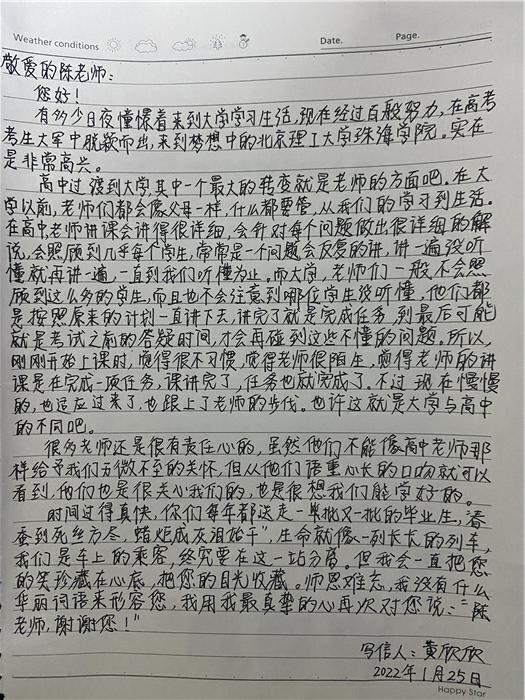 Weather conditions Date. Page.
敬爱的陈老师:
您好!
有多少日夜憧憬着来到大学学习生活,现在经过百般努力,在高考
考生大军中脱颖而出,来到梦想中的北京理工大学珠海学院。实在
是非常高兴。
高中过渡到大学,其中一个最大的转变就是老师的方面吧。在大
学以前,老师们都会像父母一样,什么都要管,从我们的学习到生活。
在高中老师讲课会讲得很详细,会针对每个问题做出很详细的解
说,会照顾到几乎每个学生,常常是一个问题会反复的讲,讲一遍没听
懂就再讲一遍,一直到我们听懂为止。而大学,老师们一般不会照
顾到这么多的学生,而且也不会注意到哪位学生没听懂,他们都
是按照原来的计划一直讲下去,讲完了就是完成任务,到最后可能
就是考试之前的答疑时间,才会再碰到这些不懂的问题。所以,
刚刚开始上课时,觉得很不习惯,觉得老师很陌生,觉得老师的讲
课是在完成一项任务,课讲完了,任务也就完成了。不过现在慢慢
的,也适应过来了,也跟上了老师的步伐。也许这就是大学与高中
的不同吧。
很多老师还是很有责任心的,虽然他们不能像高中老师那
样给予我们无微不至的关怀,但从他们语重心长的口吻就可以
看到,他们也是很关心我们的,也是很想我们能学好的。
时间过得真快,你们每年都送走一批又一批的毕业生,“春
蚕到死丝方尽,蜡炬成灰泪始干”,生命就像一列长长的列车,
我们是车上的乘客,终究要在这一站分离。但我会一直把您
的笑珍藏在心底,把您的目光收藏。师恩难忘,我没有什么
华丽词语来形容您,我用我最真挚的心再次对您说:“陈
老师,谢谢您!”
写信人:黄欣欣
2022年1月25日
Happy Star